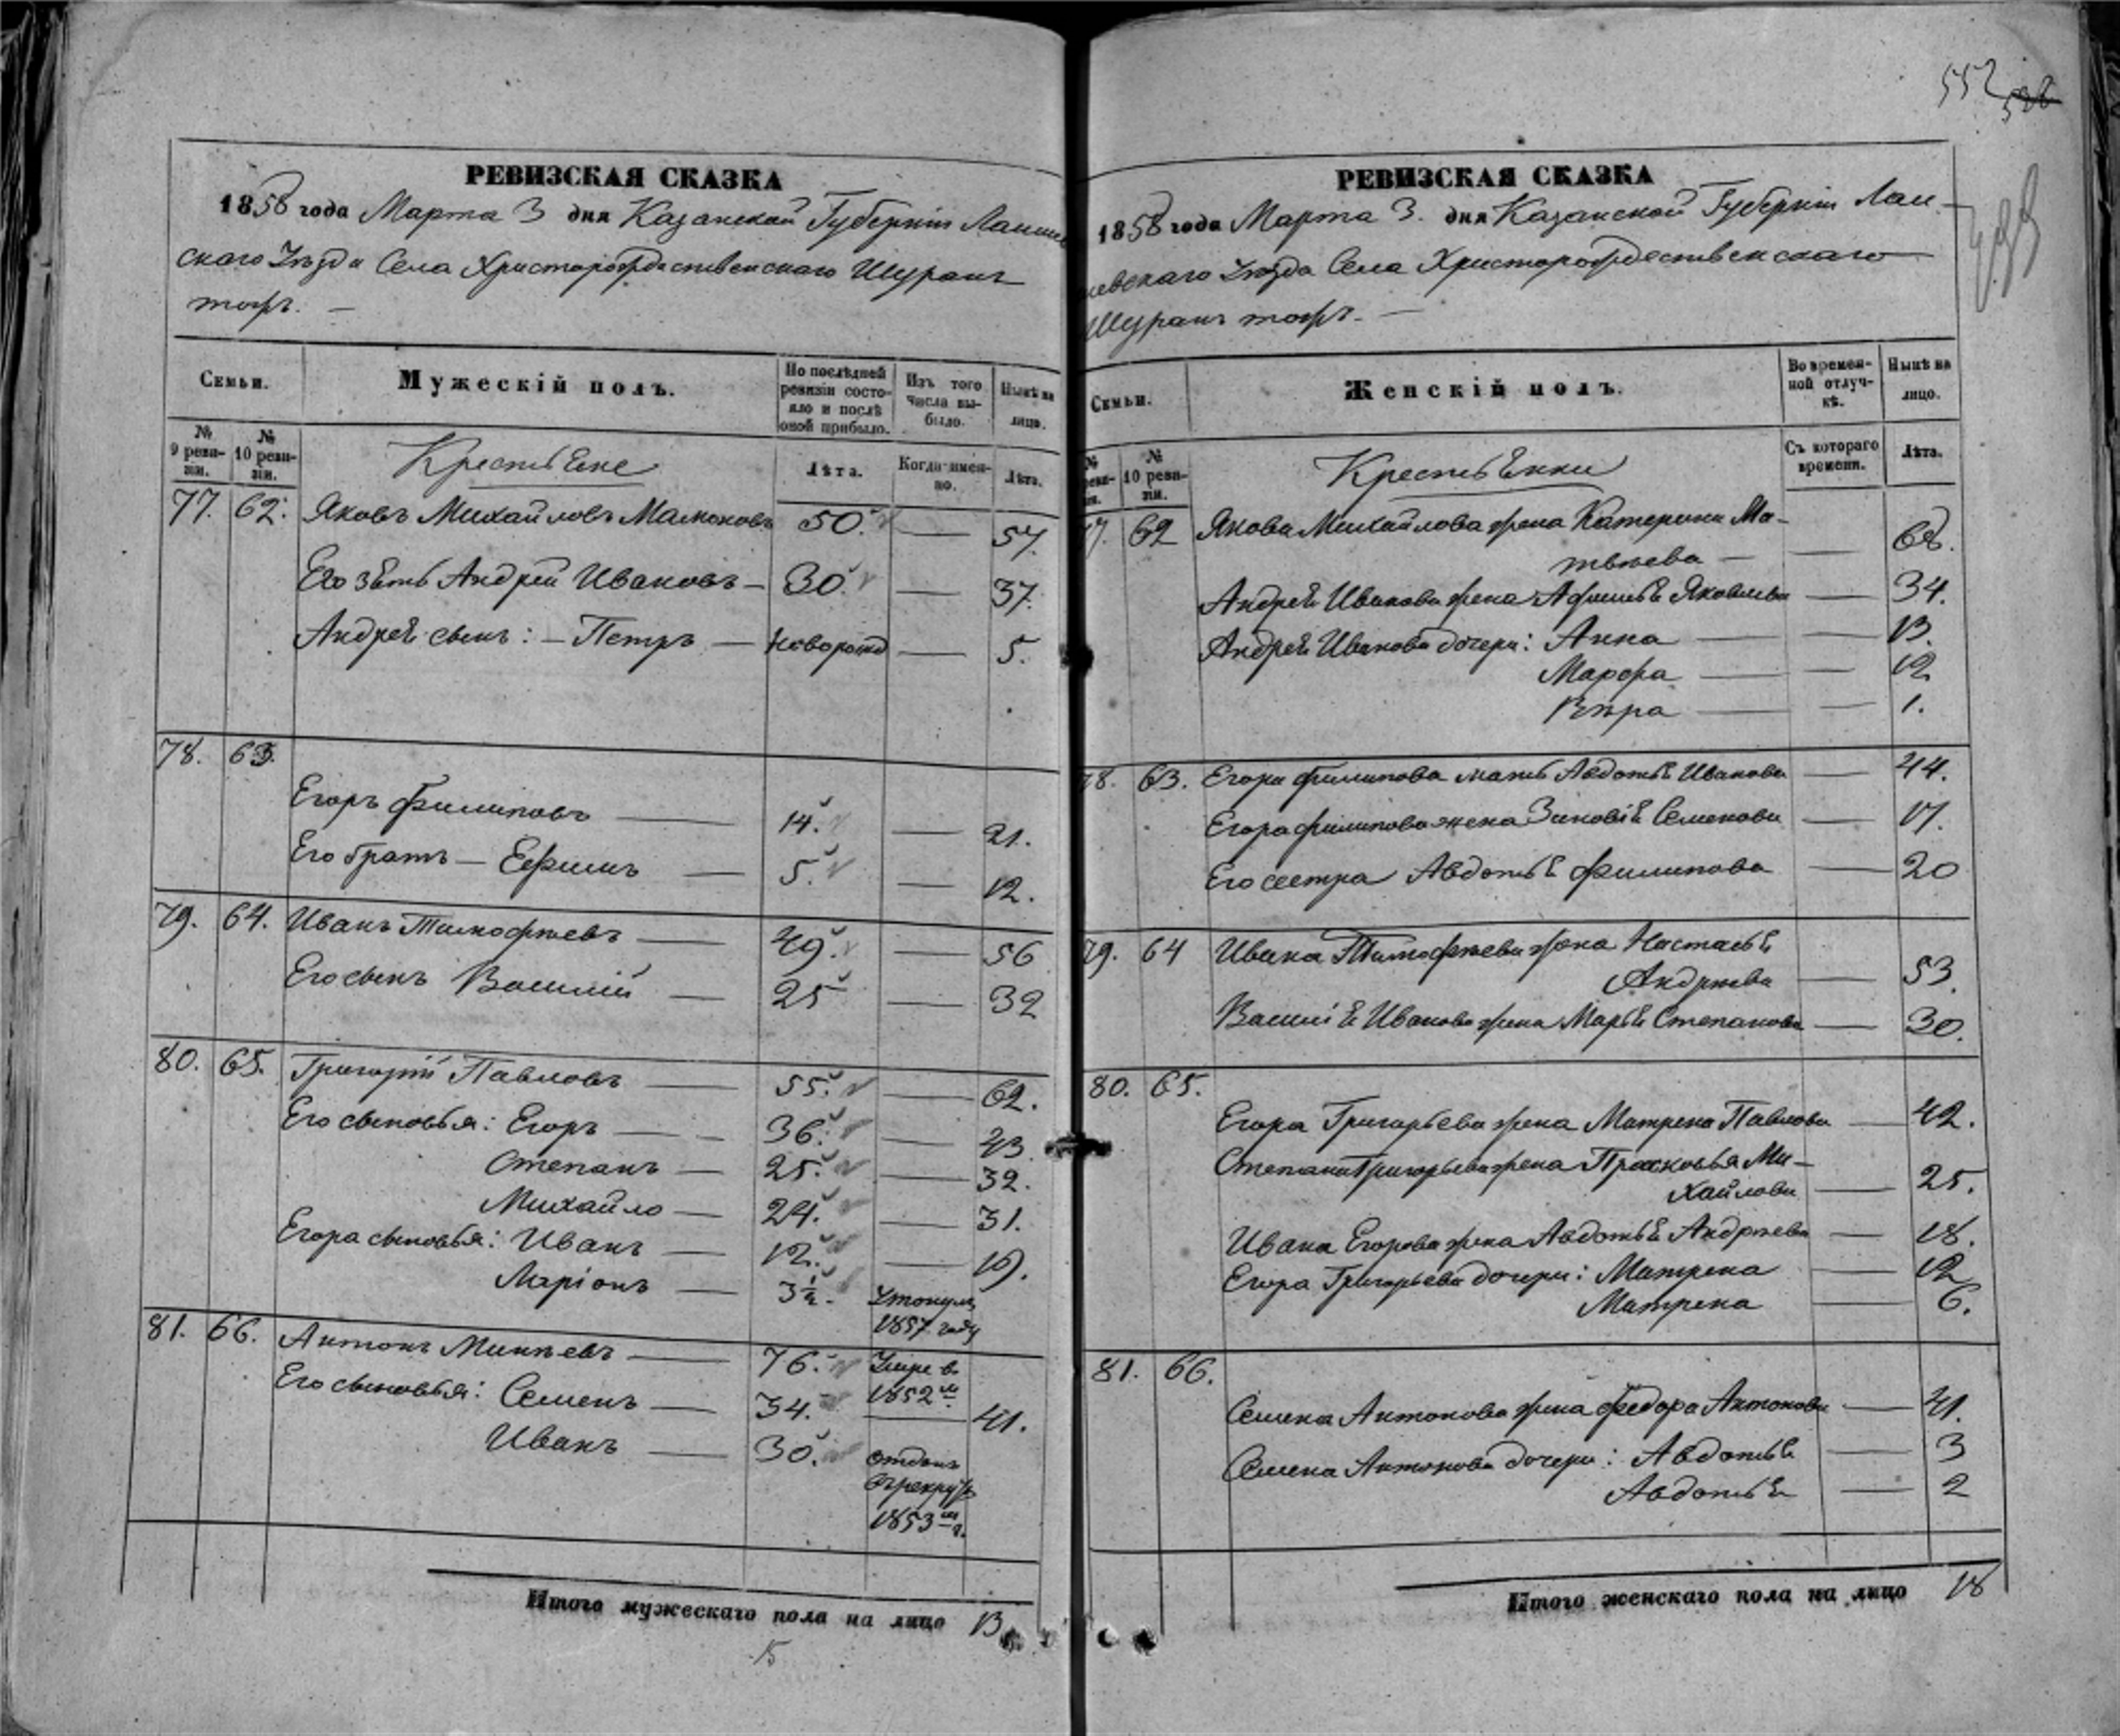 552
РЕВИЗСКАЯ СКАЗКА
1858 года Марта 3 дня Казанской Губерніи Лаише
скаго Уѣзда Села Христорождественскаго Шуранъ
тожъ. —
Семьи.
Мужескій полъ.
По послѣдней ревизіи состояло и послѣ оной прибыло.
Изъ того числа выбыло.
Нынѣ на лицо.
№ 9 ревизіи.
№ 10 ревизіи.
Крестьяне
Лѣта.
Когда именно.
Лѣта.
77. 62. Яковъ Михайловъ Мамоновъ 50. — 57.
Его зять Андрей Ивановъ — 30. — 37.
Андрея сынъ: — Петръ — новорожд — 5.
78. 63.
Егоръ Филиповъ — 14. — 21.
Его братъ — Ефимъ — 5. — 12.
79. 64. Иванъ Тимофѣевъ — 49. — 56
Его сынъ Василій — 25 — 32
80. 65. Григорій Павловъ — 55. — 62.
Его сыновья: Егоръ — 36. — 43.
Степанъ — 25. — 32.
Михайло — 24. — 31.
Егора сыновья: Иванъ — 12. — 19.
Маріонъ — 3½. Утонулъ
1857 году
81. 66. Антонъ Минѣевъ — 76. Умре в
1852 м
Его сыновья: Семенъ — 34. — 41.
Иванъ — 30. отданъ
въ рекруты
1853 м г.
Итого мужескаго пола на лицо 13
15
РЕВИЗСКАЯ СКАЗКА
1858 года Марта 3. дня Казанской Губерніи Лаи-
шевскаго Уѣзда Села Христорождественскаго
Шуранъ тожъ. —
Семьи.
Женскій полъ.
Во временной отлучкѣ.
Нынѣ на лицо.
№ 10 ревизіи.
Крестьянки
Съ котораго времени.
Лѣта.
77. 62 Якова Михайлова жена Катерина Ма-
твѣева — — 68.
Андрея Иванова жена Афимья Яковлева — 34.
Андрея Иванова дочери: Анна — — 13.
Марфа — — 12
Вѣра — — 1.
78. 63. Егора Филипова мать Авдотья Иванова — 44.
Егора Филипова жена Зиновія Семенова — 17.
Его сестра Авдотья Филипова — 20
79. 64 Ивана Тимофѣева жена Настасья
Андрѣева — 53.
Василія Иванова жена Марья Степанова — 30.
80. 65.
Егора Григорьева жена Матрена Павлова — 42.
Степана Григорьева жена Прасковья Ми-
хайлова — 25.
Ивана Егорова жена Авдотья Андрѣева — 18.
Егора Григорьева дочери: Матрена — 12
Матрена — 6.
81. 66.
Семена Антонова жена Федора Антонова — 41.
Семена Антонова дочери: Авдотья — 3
Авдотья — 2
Итого женскаго пола на лицо 18